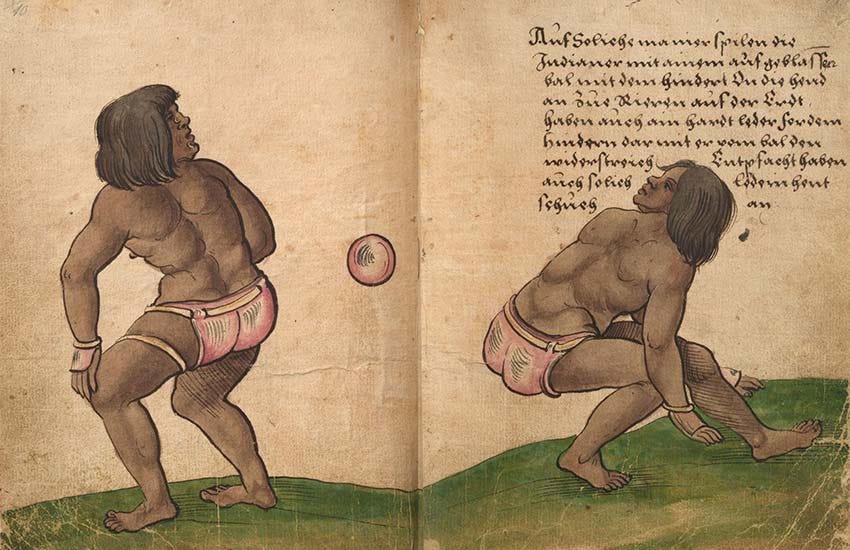 10
Auf Soliche manier spilen die
Indianer mit ainem auf geblassen
bal mit dem hindert On die hend
an Zue Rieren auf der Erdt
haben auch ain hardt leder for dem
hindern dar mit er vom bal den
widerstreich Entpfacht haben
auch solich ledern hent
schuch an